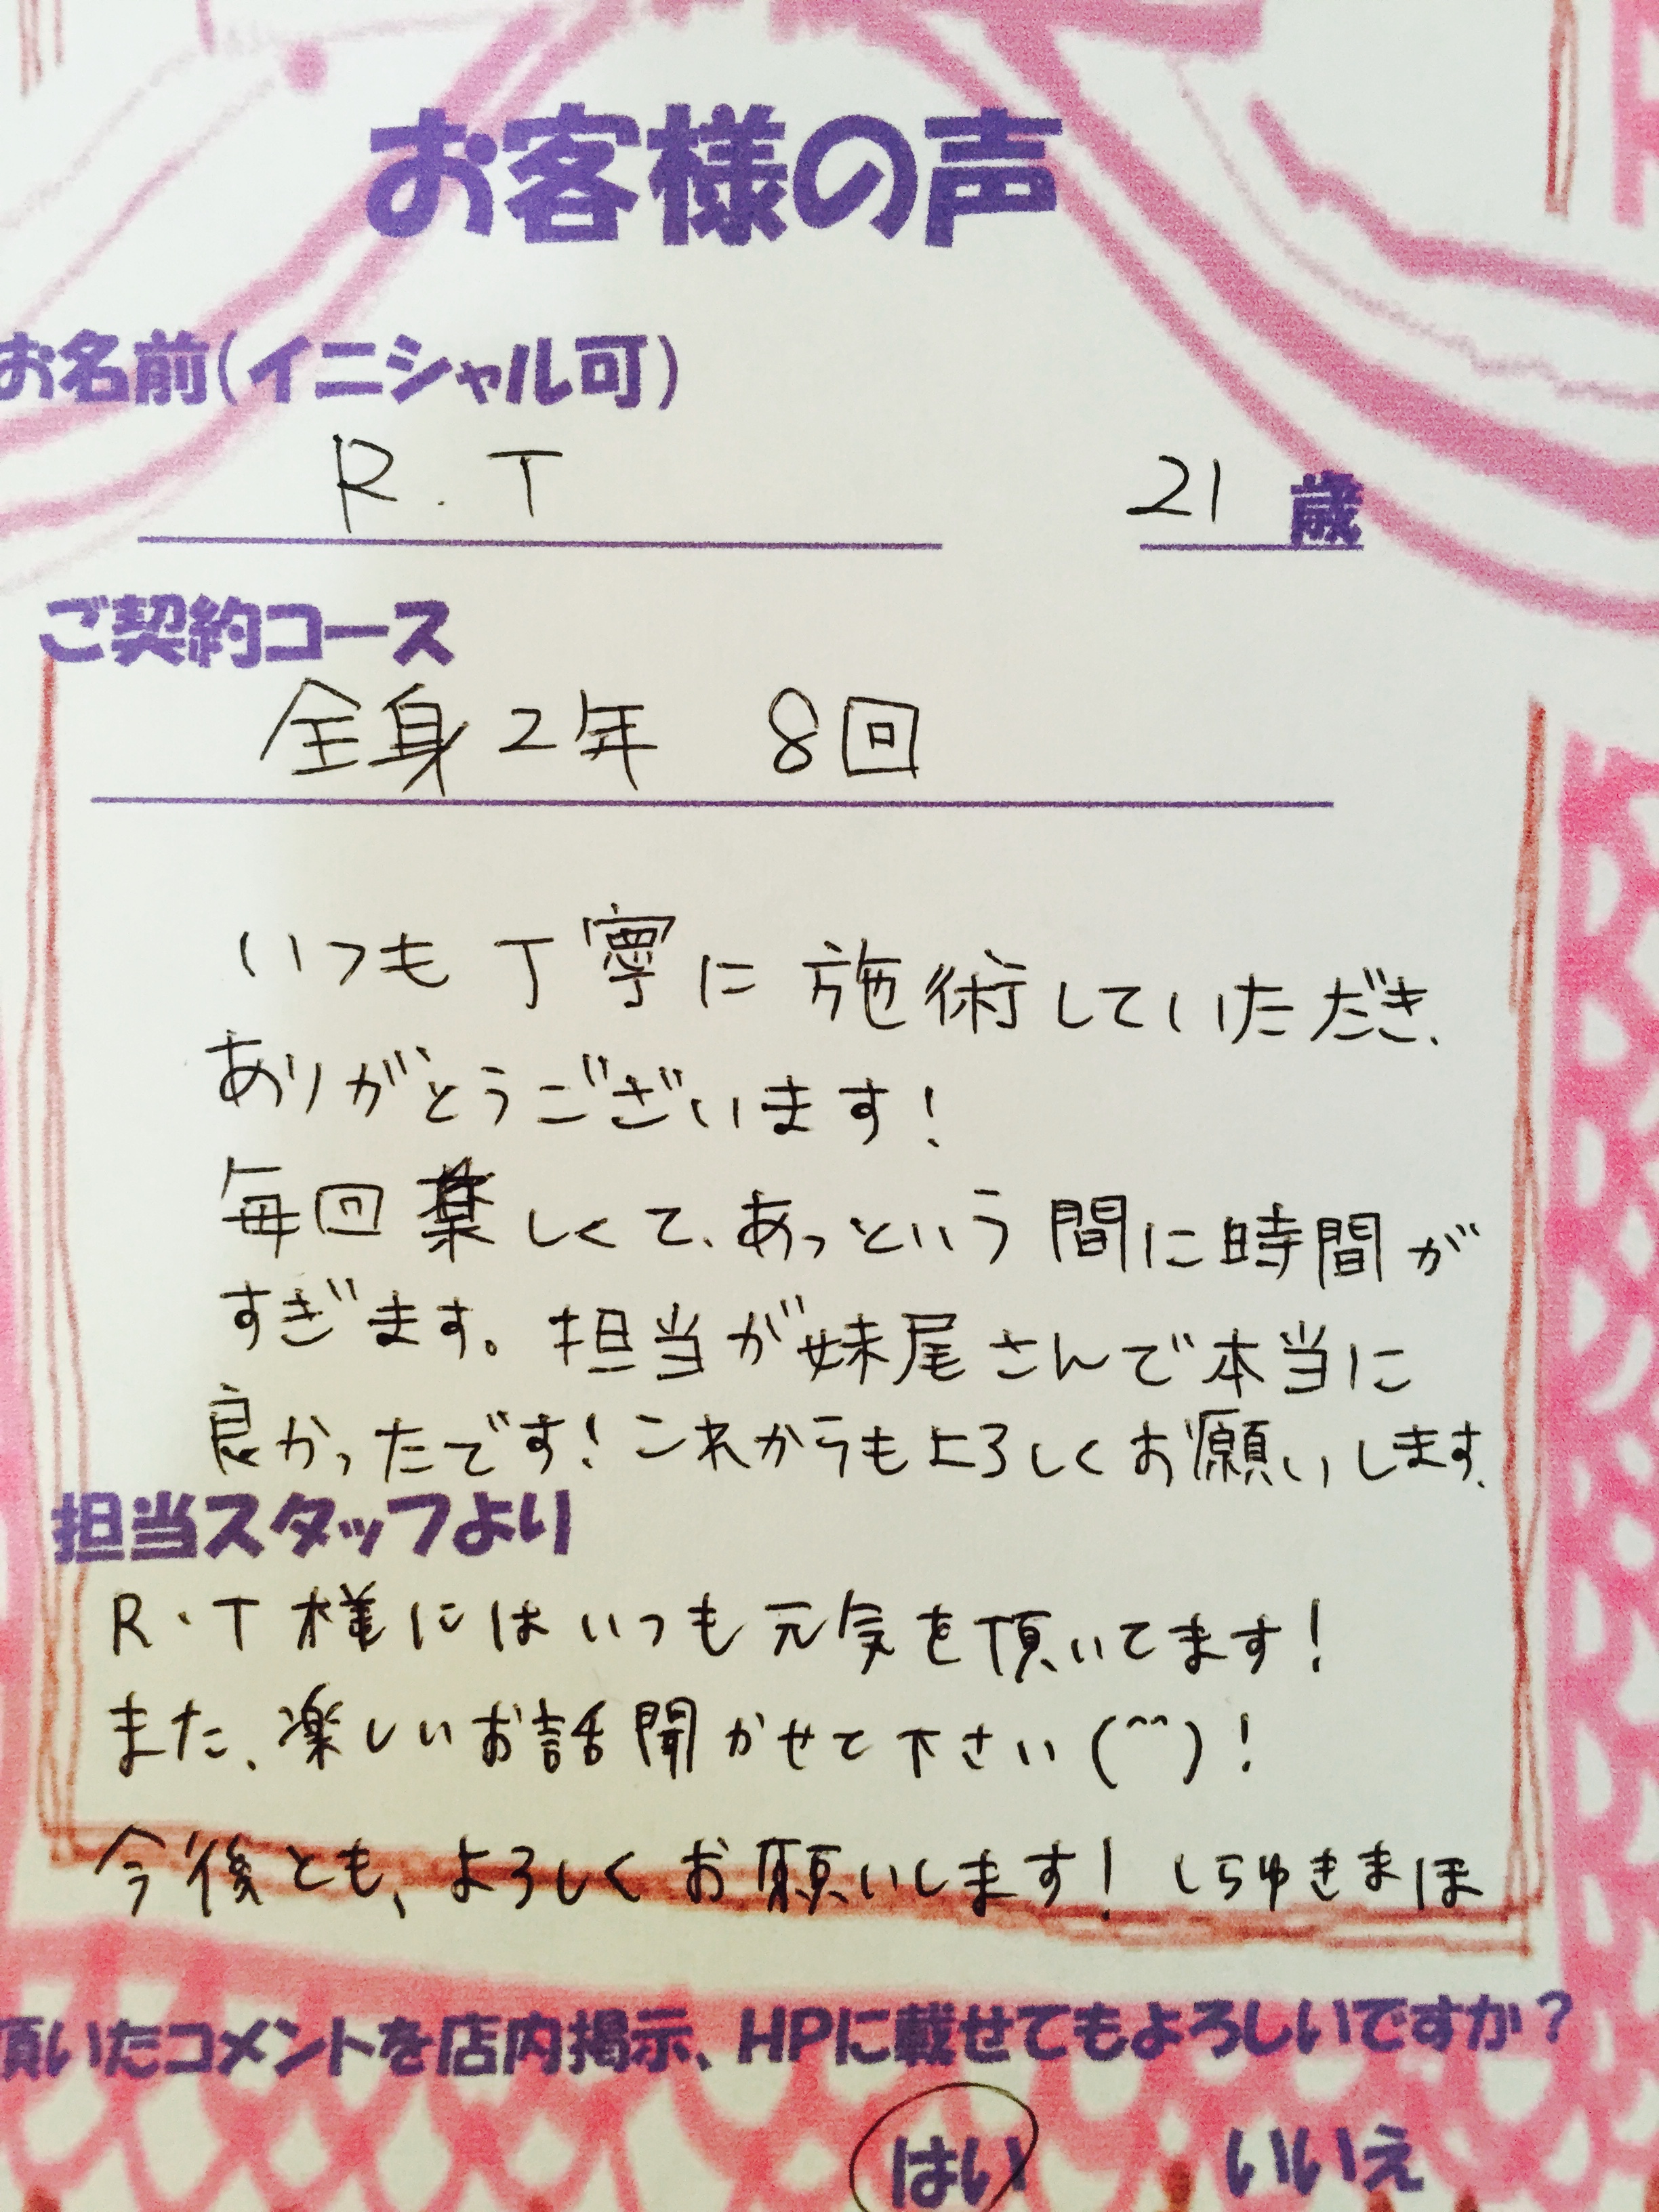 お客様の声
お名前(イニシャル可)
R.T 21歳
ご契約コース
全身2年 8回
いつも丁寧に施術していただき、
ありがとうございます!
毎回楽しくて、あっという間に時間が
すぎます。担当が妹尾さんで本当に
良かったです!これからもよろしくお願いします。
担当スタッフより
R・T様にはいつも元気を頂いてます!
また、楽しいお話聞かせて下さい(^^)!
今後とも、よろしくお願いします! しらゆきまほ
頂いたコメントを店内掲示、HPに載せてもよろしいですか?
はい いいえ